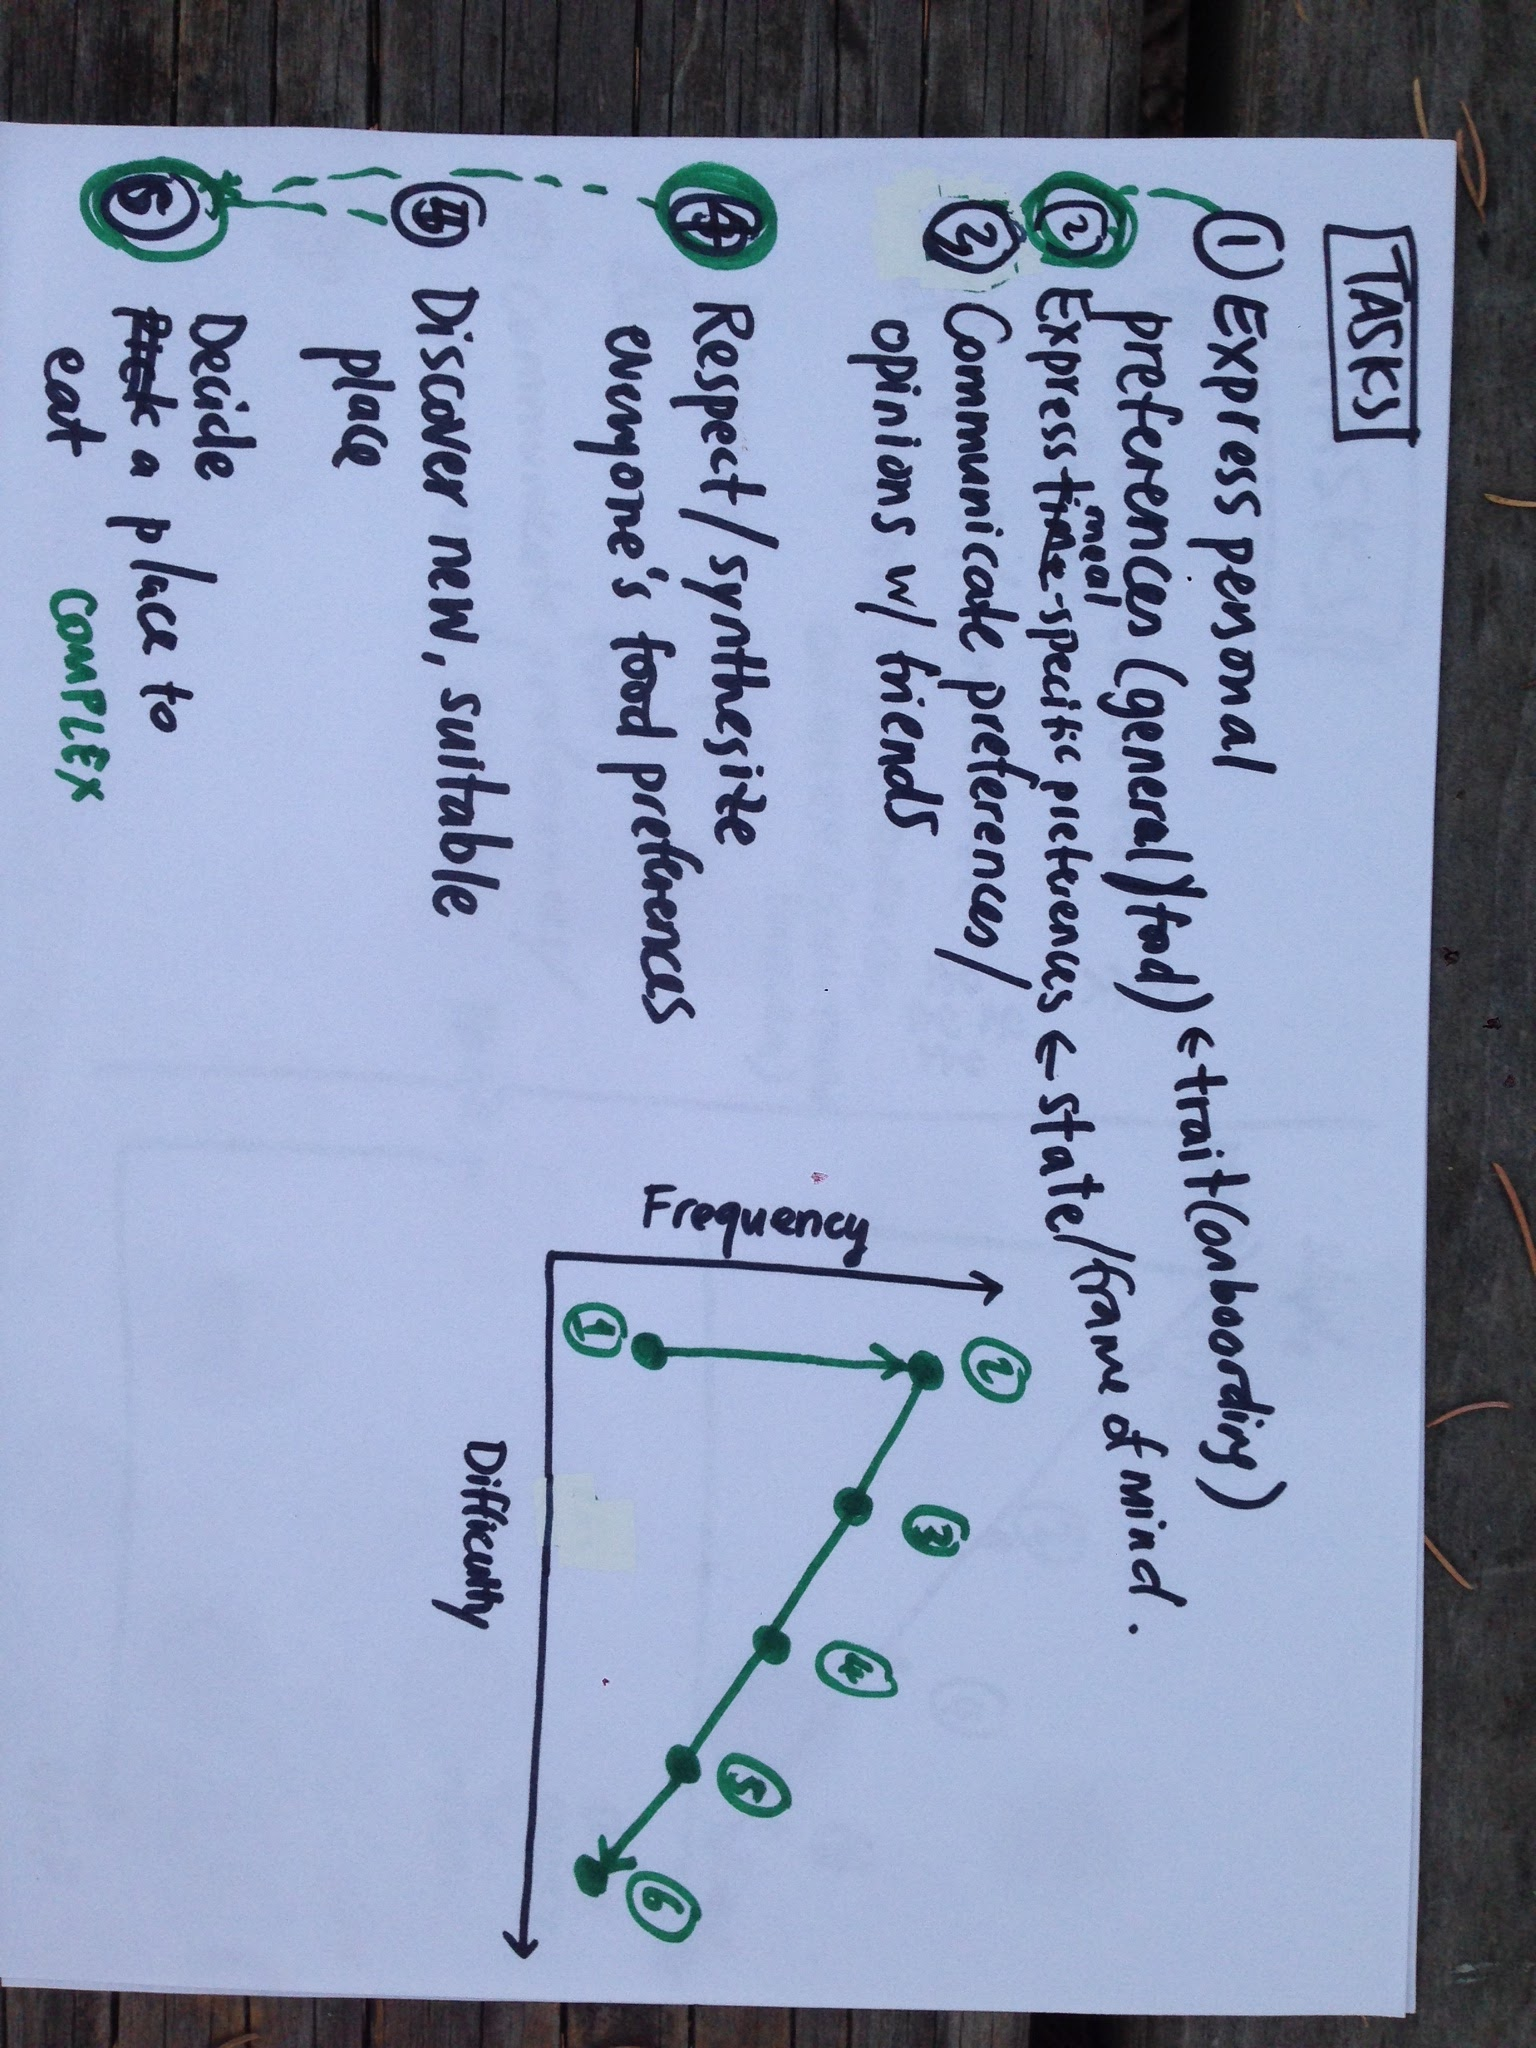 TASKS
① Express personal
preferences (general) (food) ← trait (onboarding)
② Express time-specific preferences ← state/frame of mind.
meal
Communicate preferences/
opinions w/ friends
Respect/synthesize
everyone's food preferences
Discover new, suitable
place
Decide
a place to
eat
COMPLEX
Frequency
Difficulty
①
②
③
④
⑤
⑥